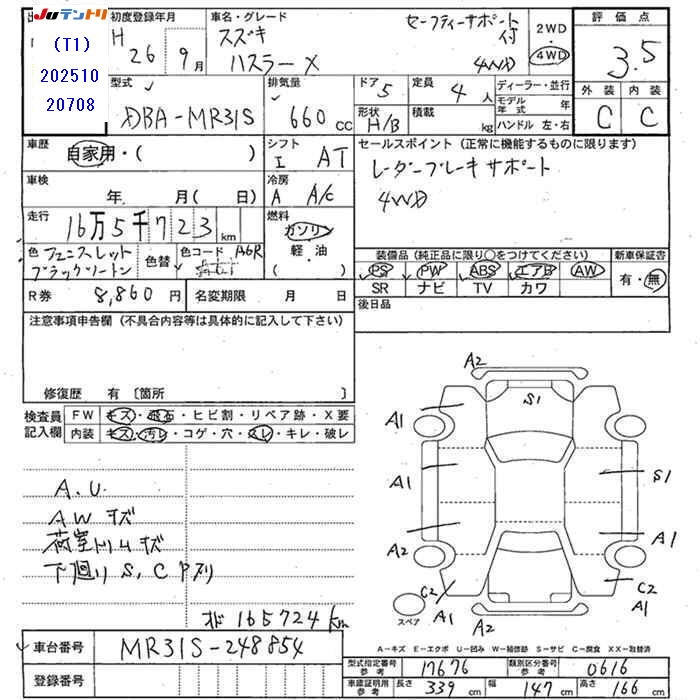 JUテントリ
(T1)
202510
20708
初度登録年月
H 26年 9月
車名・グレード
スズキ
ハスラー X
セーフティーサポート
付
4WD
2WD
4WD
評価点
3.5
外装 内装
C C
型式
DBA-MR31S
排気量
660 cc
ドア 5
定員 4人
形状 H/B
積載 kg
ディーラー・並行
モデル年式 年
ハンドル 左・右
車歴
自家用・( )
シフト
I AT
セールスポイント (正常に機能するものに限ります)
レーダーブレーキサポート
4WD
車検
年 月( 日)
冷房
A A/C
走行
16万5千723km
燃料
ガソリン
軽・油
( )
色
フェニックスレッド
ブラックツートン
色替
色コード A6R
装備品 (純正品に限り○をつけてください)
PS PW ABS エアB AW
SR ナビ TV カワ
新車保証書
有・無
R券 8,860円
名変期限 月 日
後日品
注意事項申告欄 (不具合内容等は具体的に記入して下さい)
修復歴 有 〔箇所 〕
検査員記入欄
FW キズ・飛石・ヒビ割・リペア跡・X要
内装 キズ・汚レ・コゲ・穴・スレ・キレ・破レ
A.U.
AWキズ
荷室内ムキズ
下廻りS,CPアリ
165724km
A2
S1
A1
A1
A1
S1
A2
A1
C2
A1
C2
A1
A2
スペア
A-キズ E-エクボ U-凹み W-補修跡 S-サビ C-腐食 XX-取替済
車台番号
MR31S-248854
登録番号
型式指定番号参考
17676
類別区分番号参考
0616
車庫証明用参考
長さ 339cm
幅 147cm
高さ 166cm